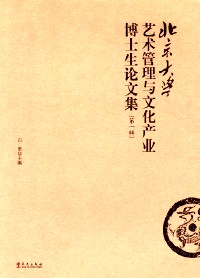 北京大学
艺术管理与文化产业
博士生论文集
(第一辑)